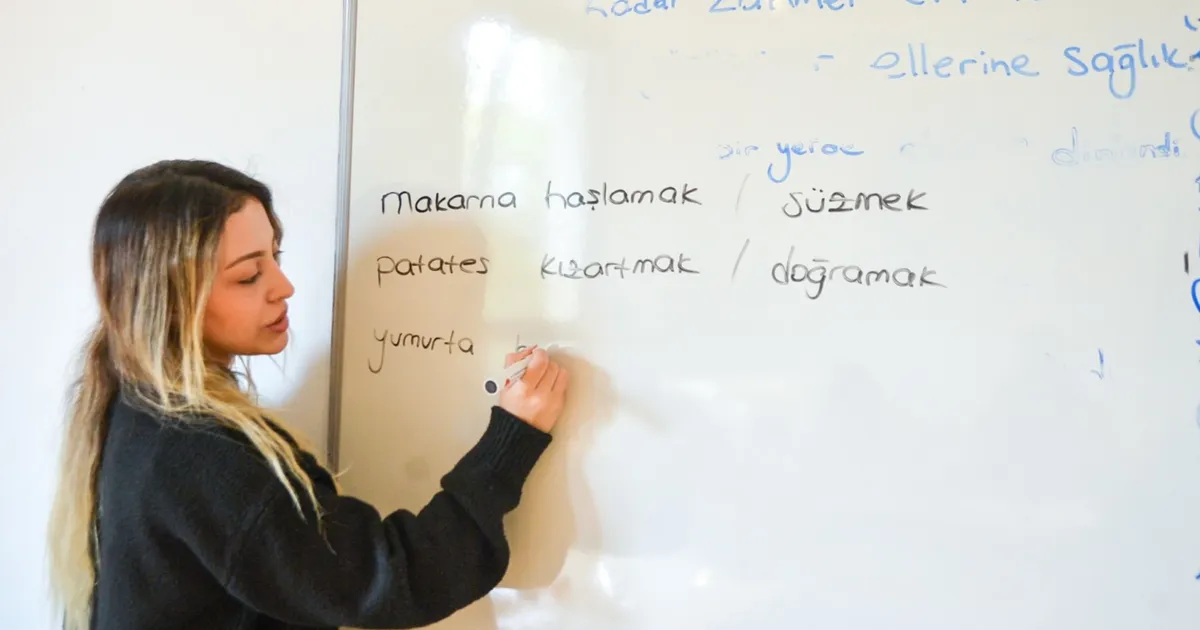 ellerine sağlık
bir yerde
makarna haşlamak / süzmek
patates kızartmak / doğramak
yumurta